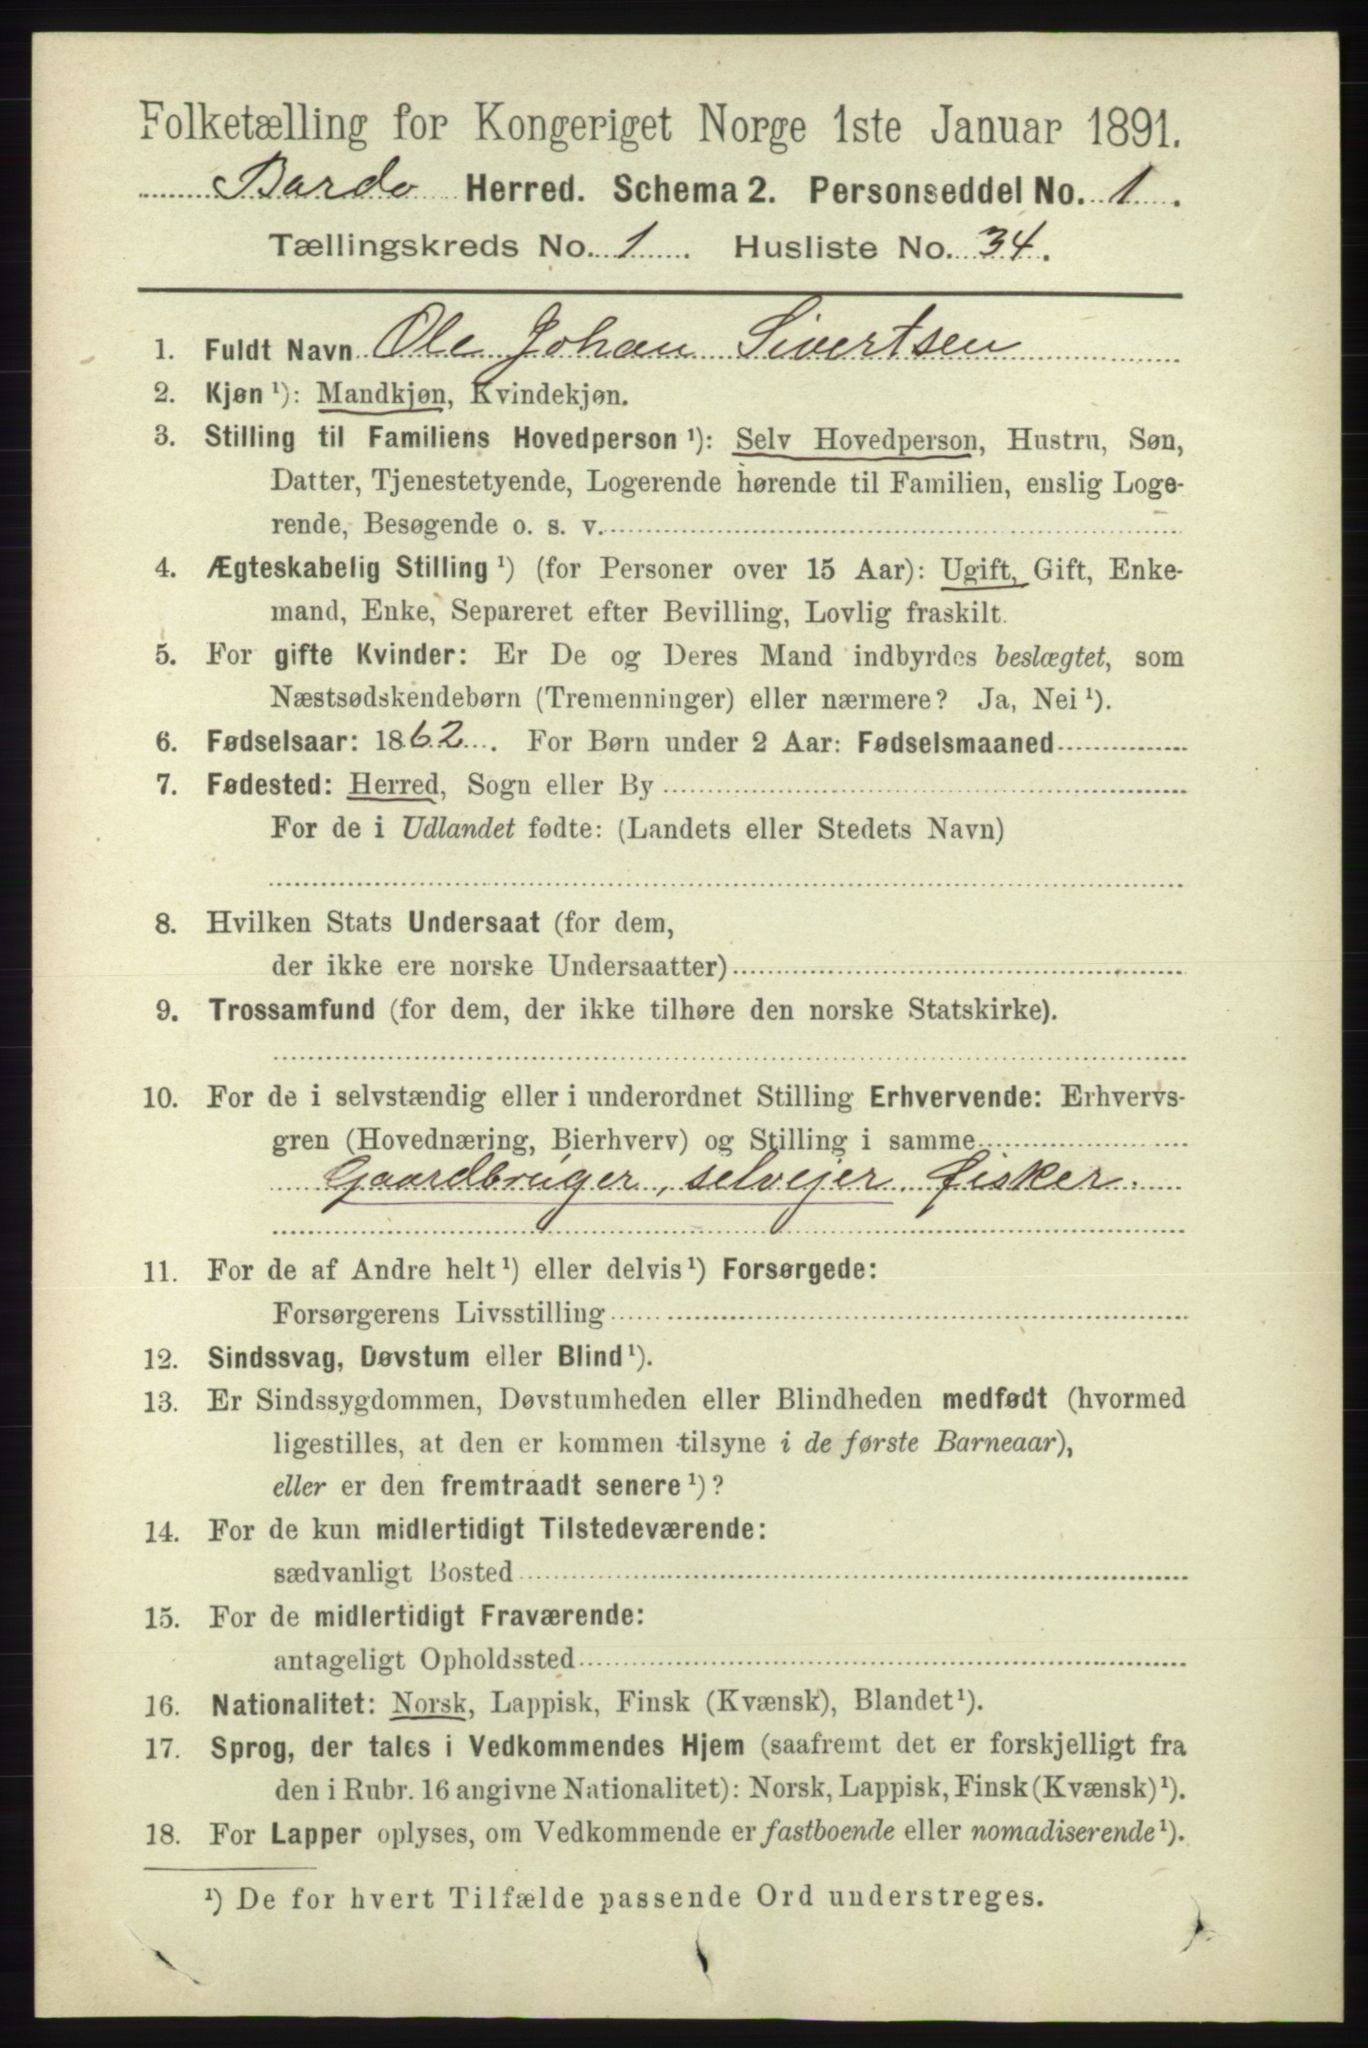 Folketælling for Kongeriget Norge 1ste Januar 1891.
Bardo Herred. Schema 2. Personseddel No. 1.
Tællingskreds No. 1. Husliste No. 34.
1. Fuldt Navn Ole Johan Sivertsen
2. Kjøn ¹): Mandkjøn, Kvindekjøn.
3. Stilling til Familiens Hovedperson ¹): Selv Hovedperson, Hustru, Søn,
Datter, Tjenestetyende, Logerende hørende til Familien, enslig Loge-
rende, Besøgende o. s. v.
4. Ægteskabelig Stilling ¹) (for Personer over 15 Aar): Ugift, Gift, Enke-
mand, Enke, Separeret efter Bevilling, Lovlig fraskilt.
5. For gifte Kvinder: Er De og Deres Mand indbyrdes beslægtet, som
Næstsødskendebørn (Tremenninger) eller nærmere? Ja, Nei ¹).
6. Fødselsaar: 1862. For Børn under 2 Aar: Fødselsmaaned
7. Fødested: Herred, Sogn eller By
For de i Udlandet fødte: (Landets eller Stedets Navn)
8. Hvilken Stats Undersaat (for dem,
der ikke ere norske Undersaatter)
9. Trossamfund (for dem, der ikke tilhøre den norske Statskirke).
10. For de i selvstændig eller i underordnet Stilling Erhvervende: Erhvervs-
gren (Hovednæring, Bierhverv) og Stilling i samme
Gaardbruger, selvejer. Fisker.
11. For de af Andre helt ¹) eller delvis ¹) Forsørgede:
Forsørgerens Livsstilling
12. Sindssvag, Døvstum eller Blind ¹).
13. Er Sindssygdommen, Døvstumheden eller Blindheden medfødt (hvormed
ligestilles, at den er kommen tilsyne i de første Barneaar),
eller er den fremtraadt senere ¹)?
14. For de kun midlertidigt Tilstedeværende:
sædvanligt Bosted
15. For de midlertidigt Fraværende:
antageligt Opholdssted
16. Nationalitet: Norsk, Lappisk, Finsk (Kvænsk), Blandet ¹).
17. Sprog, der tales i Vedkommendes Hjem (saafremt det er forskjelligt fra
den i Rubr. 16 angivne Nationalitet): Norsk, Lappisk, Finsk (Kvænsk) ¹).
18. For Lapper oplyses, om Vedkommende er fastboende eller nomadiserende ¹).
¹) De for hvert Tilfælde passende Ord understreges.